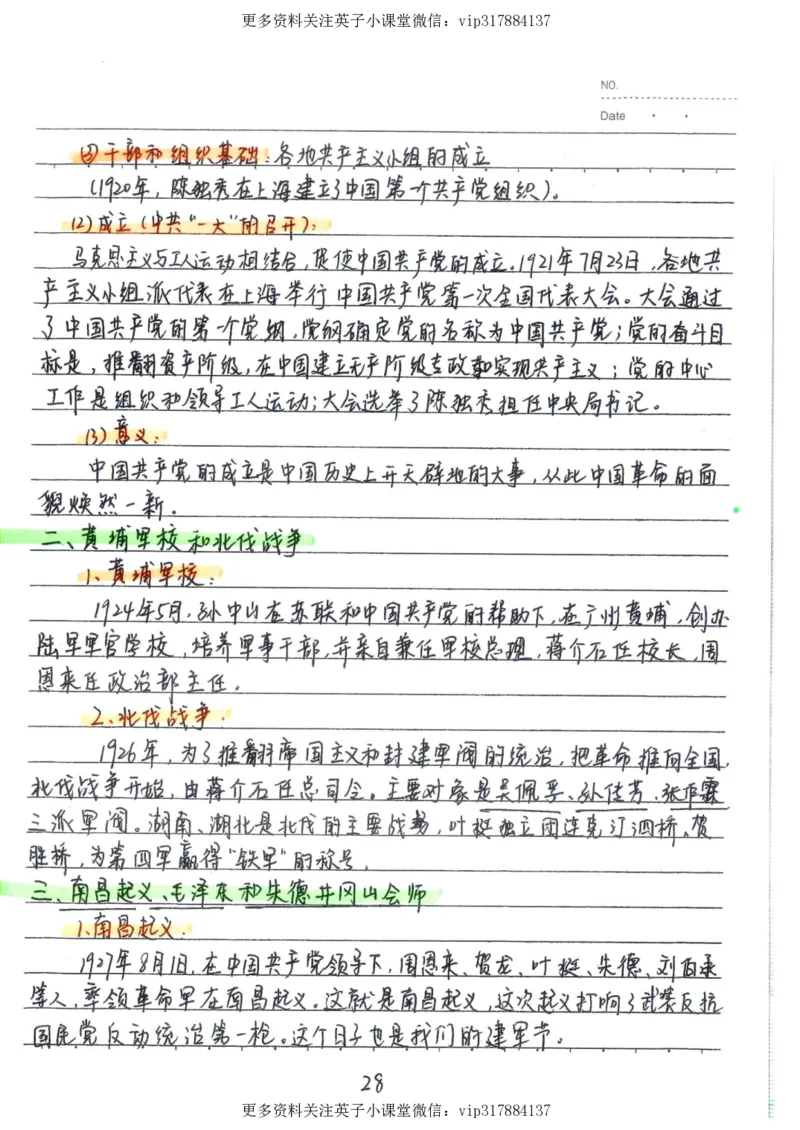 更多资料关注英子小课堂微信：vip317884137
NO.
Date
④干部和组织基础：各地共产主义小组的成立
(1920年，陈独秀在上海建立了中国第一个共产党组织)。
(2)成立(中共"一大"的召开)：
马克思主义与工人运动相结合，促使中国共产党的成立。1921年7月23日，各地共
产主义小组派代表在上海举行中国共产党第一次全国代表大会。大会通过
了中国共产党的第一个党纲，党纲确定党的名称为中国共产党；党的奋斗目
标是，推翻资产阶级，在中国建立无产阶级专政和实现共产主义；党的中心
工作是组织和领导工人运动；大会选举了陈独秀担任中央局书记。
(3)意义：
中国共产党的成立是中国历史上开天辟地的大事，从此中国革命的面
貌焕然一新。
二、黄埔军校和北伐战争
1、黄埔军校：
1924年5月，孙中山在苏联和中国共产党的帮助下，在广州黄埔，创办
陆军军官学校，培养军事干部，并亲自兼任军校总理，蒋介石任校长，周
恩来任政治部主任。
2、北伐战争：
1926年，为了推翻帝国主义和封建军阀的统治，把革命推向全国，
北伐战争开始，由蒋介石任总司令。主要对象是吴佩孚、孙传芳、张作霖
三派军阀。湖南、湖北是北伐的主要战场，叶挺独立团连克汀泗桥、贺
胜桥，为第四军赢得"铁军"的称号。
三、南昌起义、毛泽东和朱德井冈山会师
1、南昌起义：
1927年8月1日，在中国共产党领导下，周恩来、贺龙、叶挺、朱德、刘伯承
等人，率领革命军在南昌起义。这就是南昌起义，这次起义打响了武装反抗
国民党反动统治第一枪。这个日子也是我们的建军节。
28
更多资料关注英子小课堂微信：vip317884137